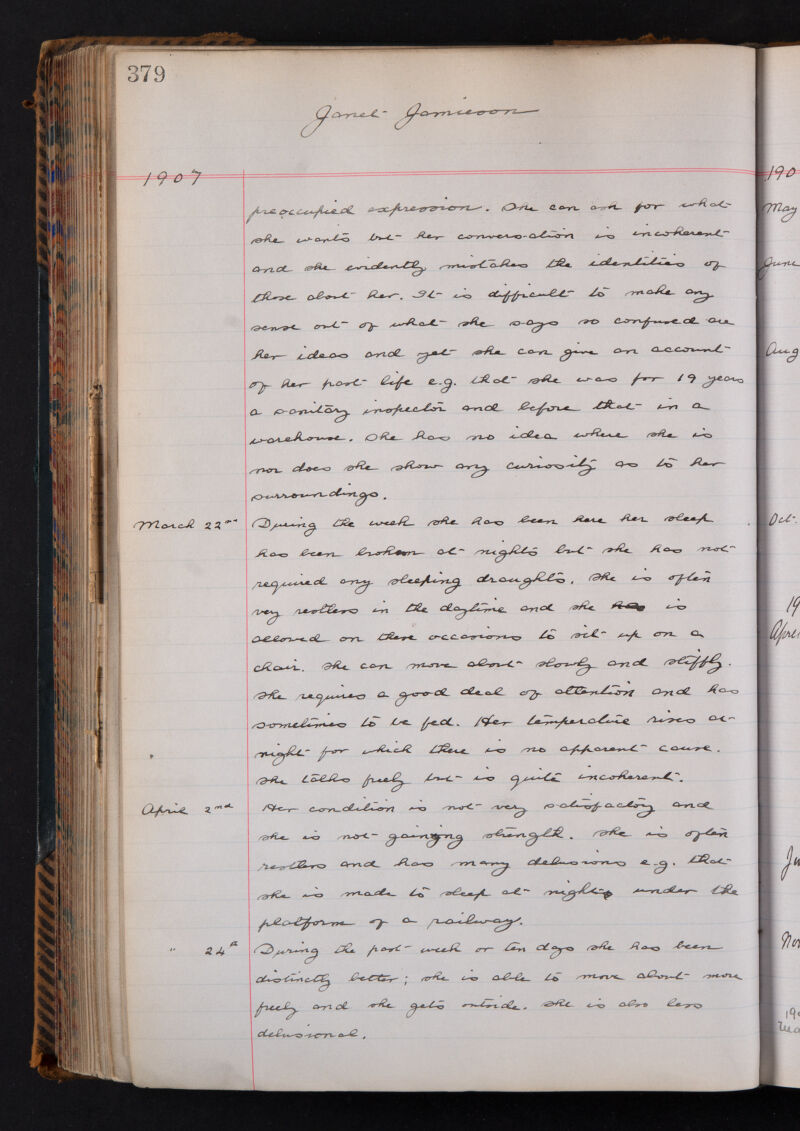 379
Janet Jamieson
1907
preoccupied expression. She can ask for what
she wants but her conversation is incoherent
and she evidently mistakes the identities of
those about her. It is difficult to make any
sense out of what she says so confused are
her ideas and yet she can give an account
of her past life e.g. that she was for 19 years
a sanitary inspector and before that in a
warehouse. She has no idea where she is
nor does she show any curiosity as to her
surroundings.
March 22nd During the week she has been here her sleep
has been broken at nights but she has not
required any sleeping draughts. She is often
very restless in the daytime and she has is
allowed on these occasions to sit up on a
chair. She can move about slowly and stiffly.
She requires a good deal of attention and has
sometimes to be fed. Her temperature rises at
night for which there is no apparent cause.
She talks freely but is quite incoherent.
April 2nd Her condition is not very satisfactory and
she is not gaining strength. She is often
restless and has many delusions e.g. that
she is made to sleep at night under the
platform of a railway.
" 24th During the past week or ten days she has been
distinctly better; she is able to move about more
freely and she gets outside. She is also less
delusional.
190
May
June
Aug
Oct.
19
April
Ju
Nov
190